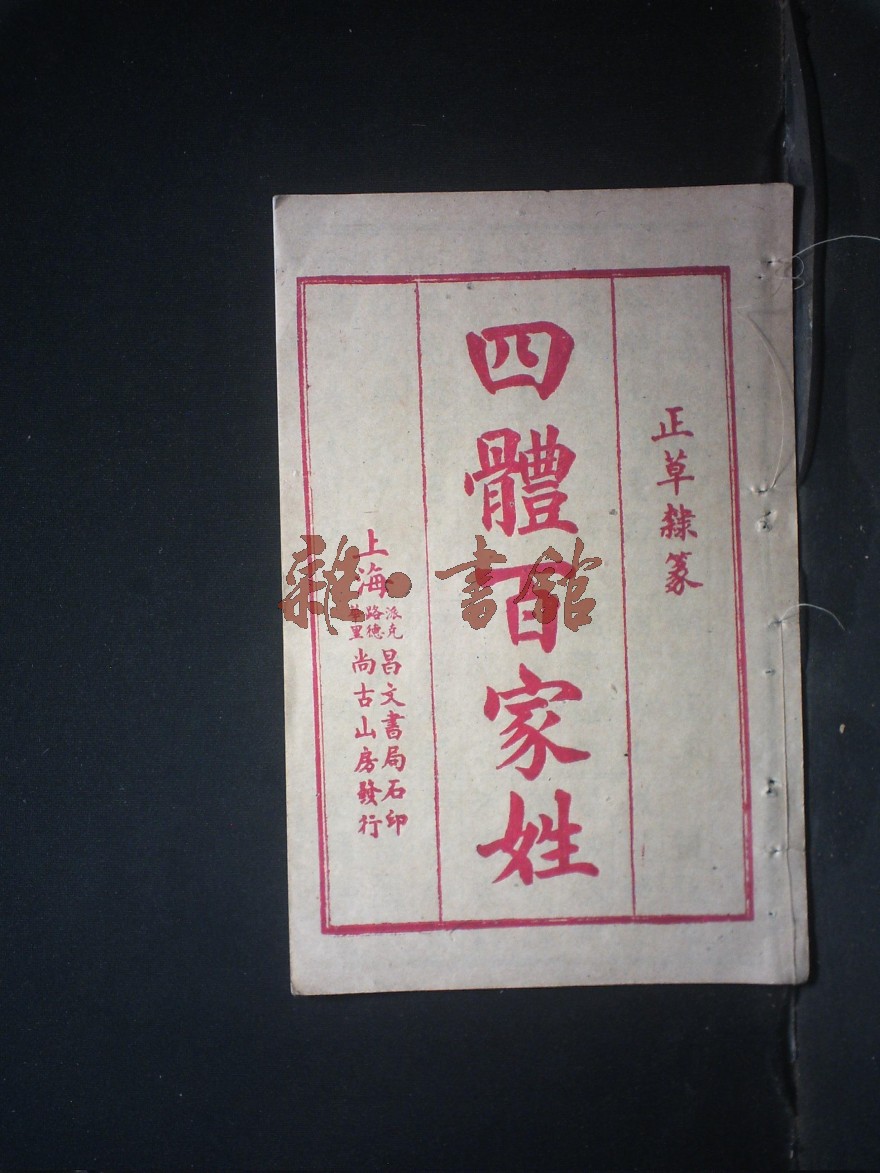 正草隸篆
四體百家姓
上海
派克
路德
里
昌文書局石印
尚古山房發行
雜·書館